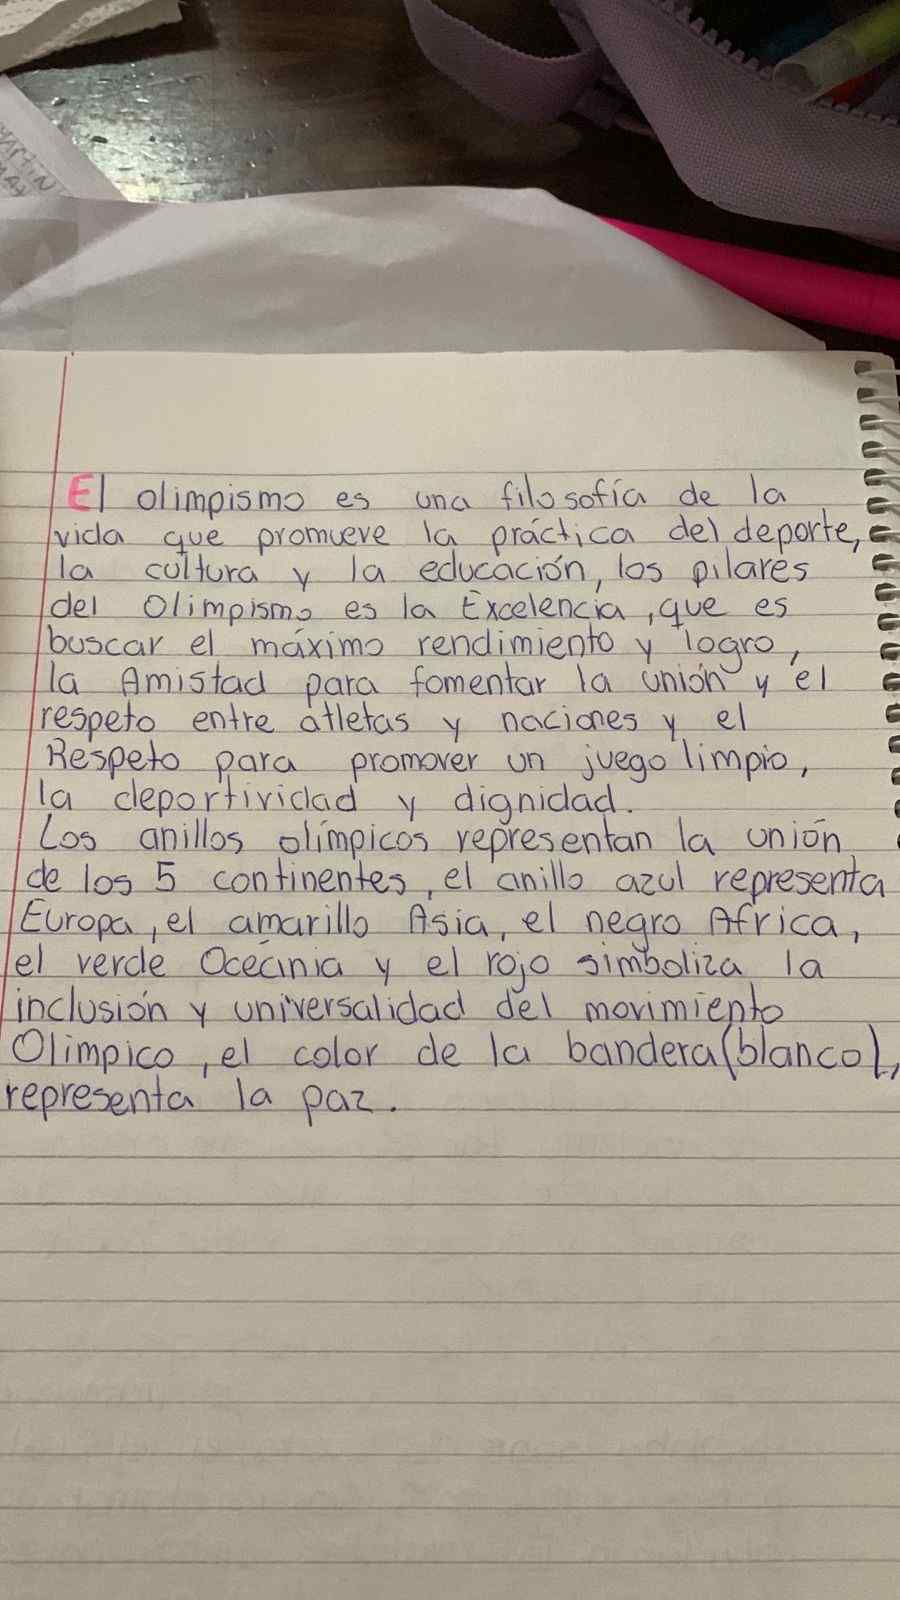 MARTIN
El olimpismo es una filosofía de la
vida que promueve la práctica del deporte,
la cultura y la educación, los pilares
del Olimpismo es la Excelencia, que es
buscar el máximo rendimiento y logro,
la Amistad para fomentar la unión y el
respeto entre atletas y naciones y el
Respeto para promover un juego limpio,
la deportividad y dignidad.
Los anillos olímpicos representan la unión
de los 5 continentes, el anillo azul representa
Europa, el amarillo Asia, el negro Africa,
el verde Oceánia y el rojo simboliza la
inclusión y universalidad del movimiento
Olimpico, el color de la bandera (blanco),
representa la paz.